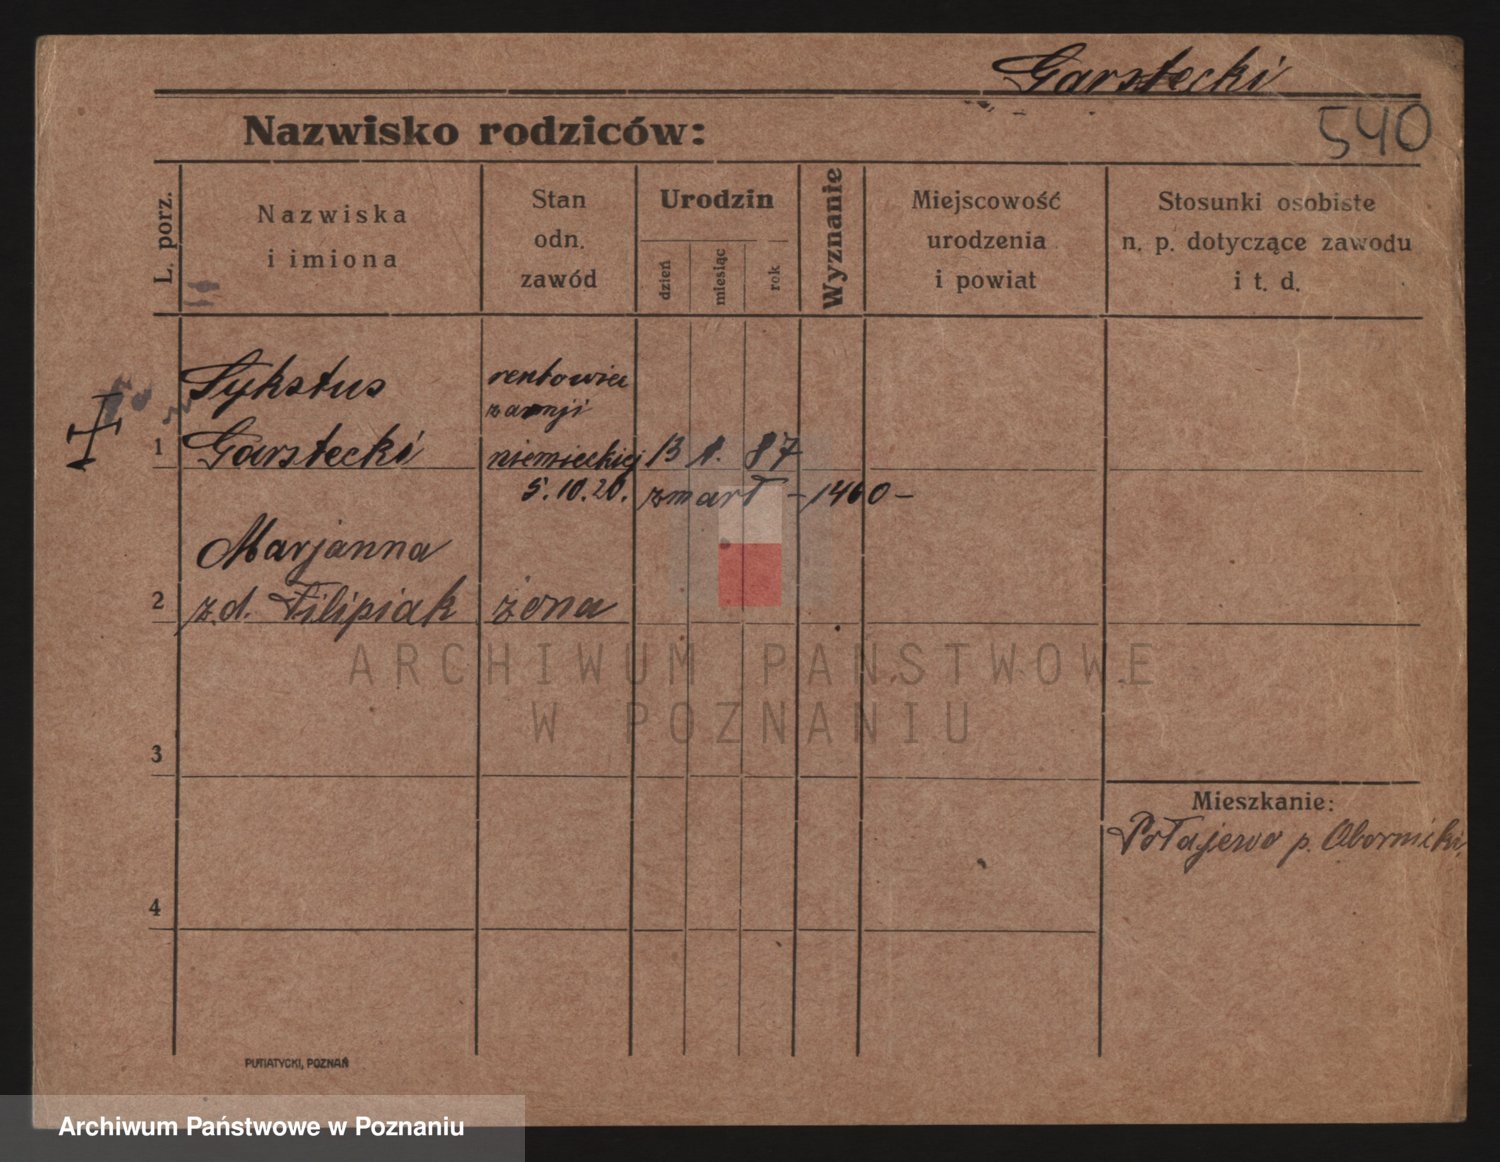 Garstecki
Nazwisko rodziców:
540
L. porz.
Nazwiska
i imiona
Stan
odn.
zawód
Urodzin
dzień
miesiąc
rok
Wyznanie
Miejscowość
urodzenia
i powiat
Stosunki osobiste
n. p. dotyczące zawodu
i t. d.
Sykstus
rentowiec
z armji
1
Garstecki
niemieckiej
13 1. 87
5.10.20. zmarł -1460-
Marjanna
2
z d. Filipiak
żona
ARCHIWUM PAŃSTWOWE
W POZNANIU
3
Mieszkanie:
Połajewo p. Obornicki
4
PUTIATYCKI, POZNAŃ
Archiwum Państwowe w Poznaniu